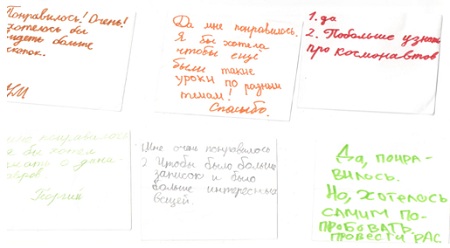 Понравилось! Очень!
хотелось бы
больше
Да мне понравилось.
Я бы хотела
чтобы ещё
были такие
уроки по разным
темам!
Спасибо.
1. да
2. Побольше узнать
про космонавтов
понравилось
бы хотел
о дино-
Георгий
Мне очень понравилось
2 Чтобы было больше
записок и было
больше интересных
вещей.
Да, понра-
вилось.
Но, хотелось
самим по-
пробовать
провести рас